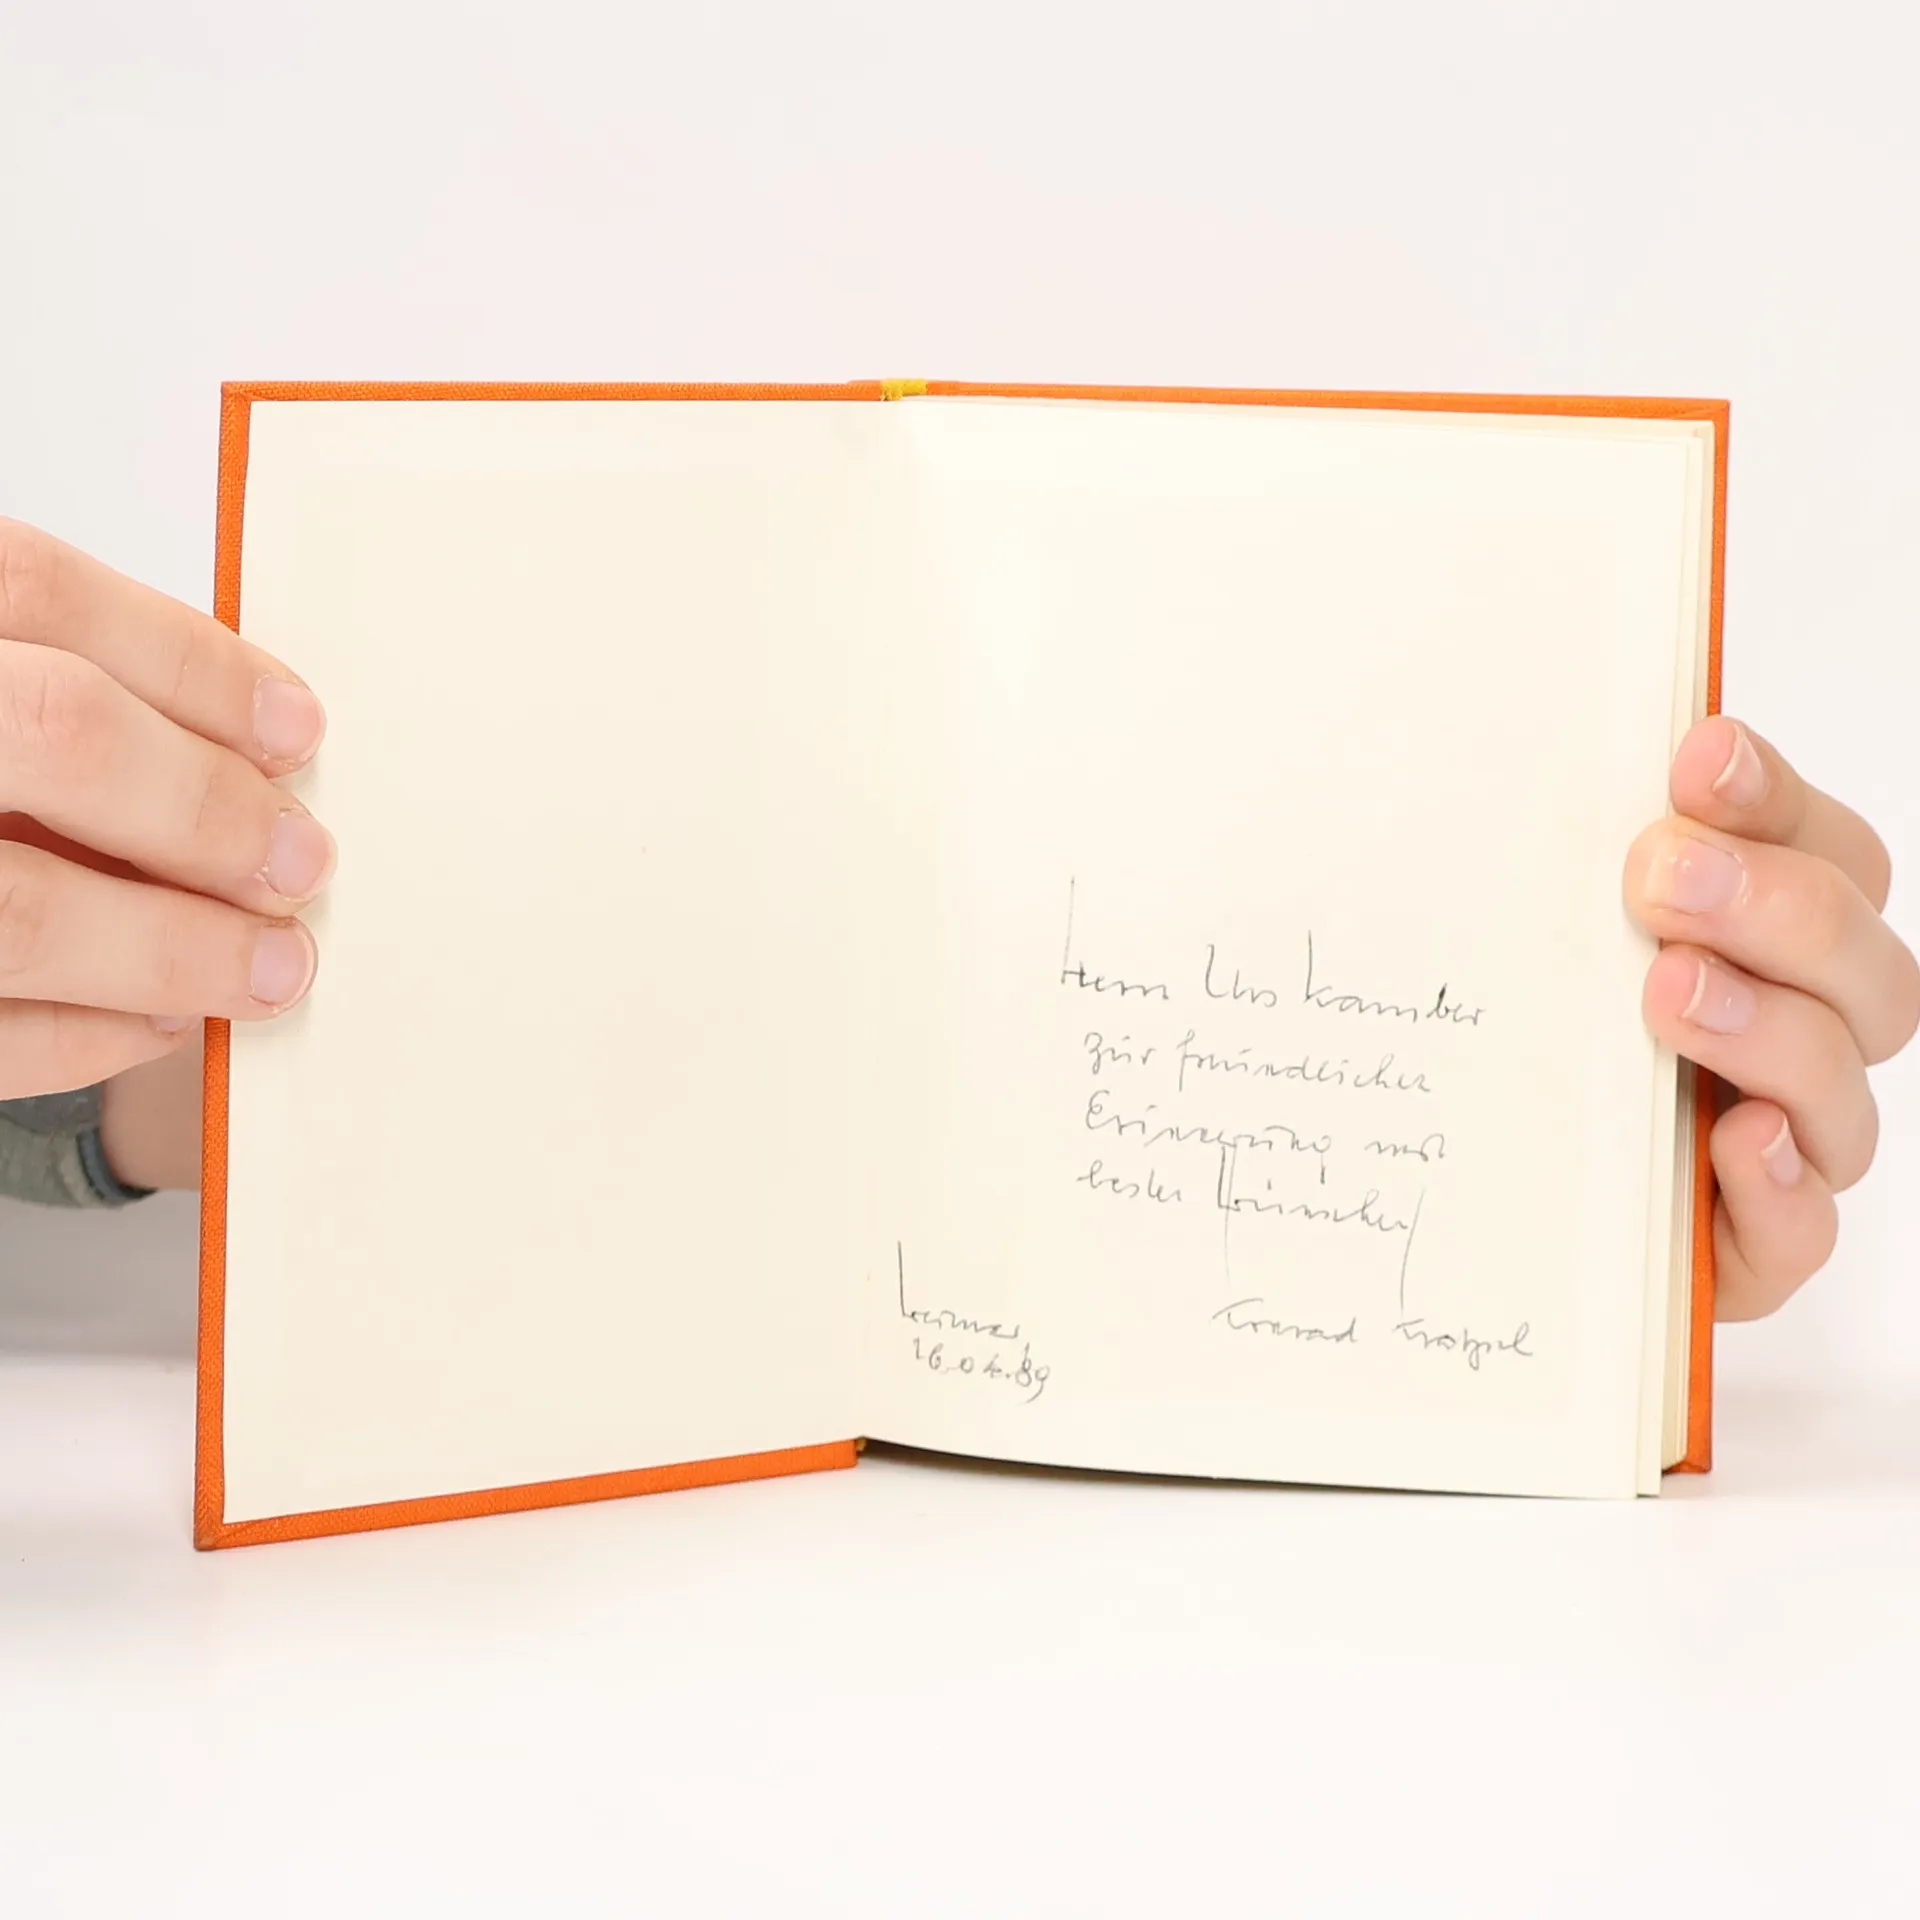 Herrn Urs Kamber
zur freundlichen
Erinnerung mit
besten Wünschen
Konrad Kratzel
Weimar,
16.04.89